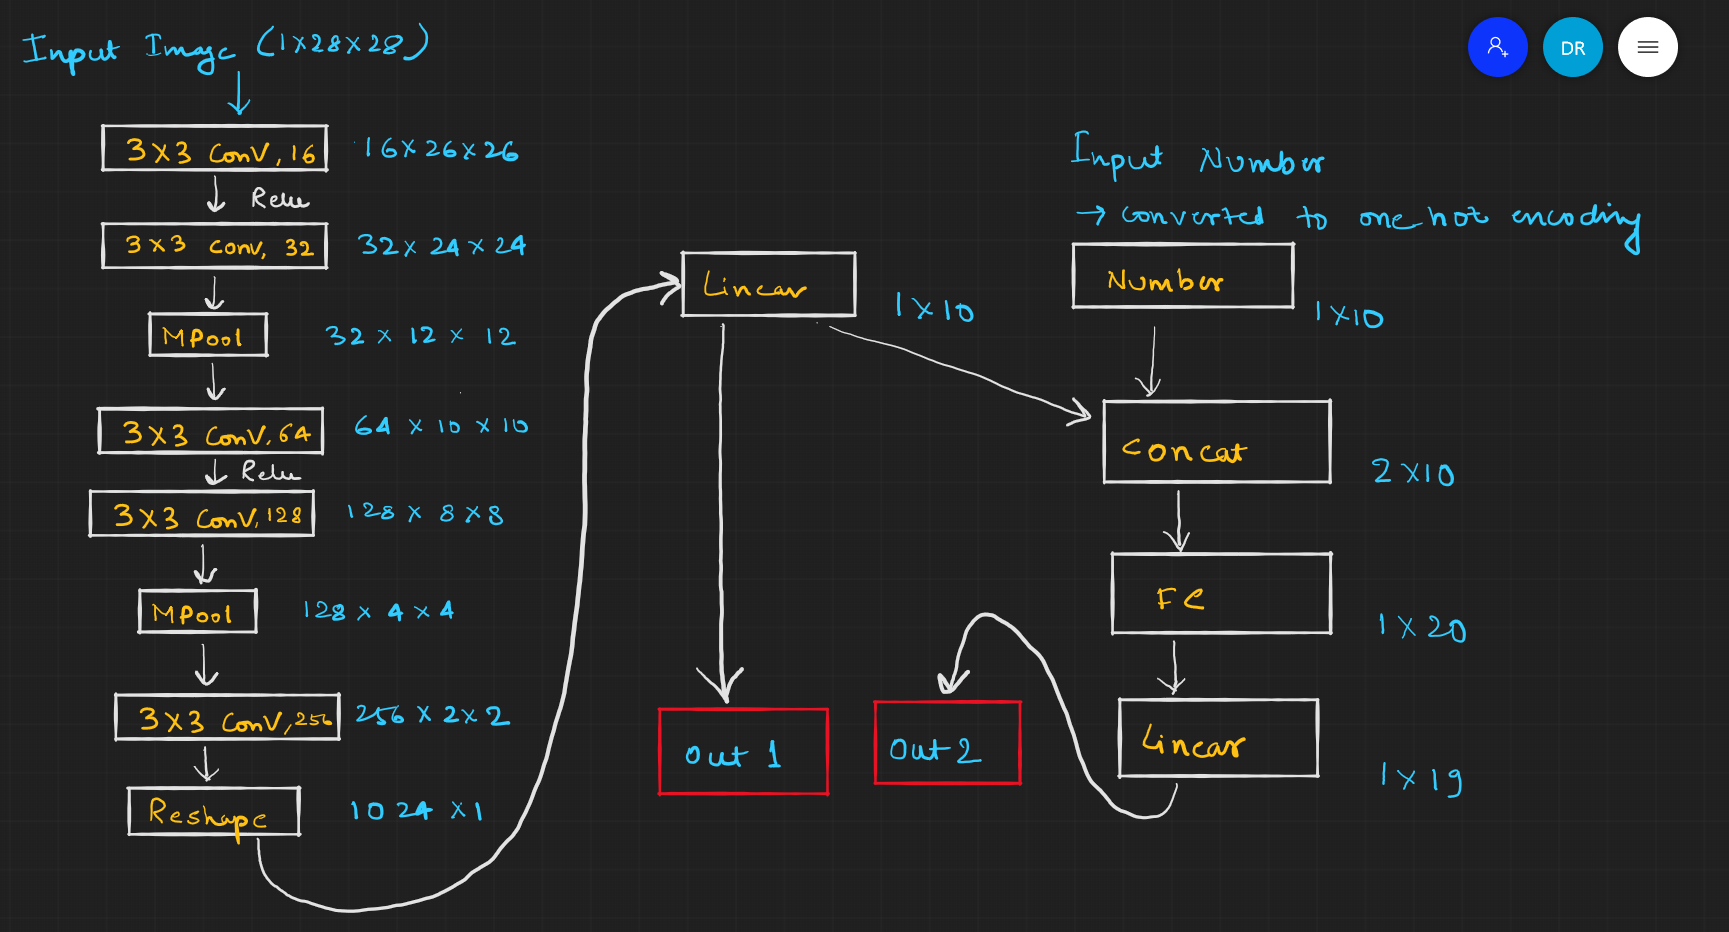 Input Image (1×28×28)
3×3 Conv, 16
16×26×26
Relu
3×3 Conv, 32
32×24×24
MPool
32×12×12
3×3 Conv, 64
64×10×10
Relu
3×3 Conv, 128
128×8×8
MPool
128×4×4
3×3 Conv, 256
256×2×2
Reshape
1024×1
Linear
1×10
Out 1
Out 2
DR
Input Number
→ converted to one hot encoding
Number
1×10
Concat
2×10
FC
1×20
Linear
1×19